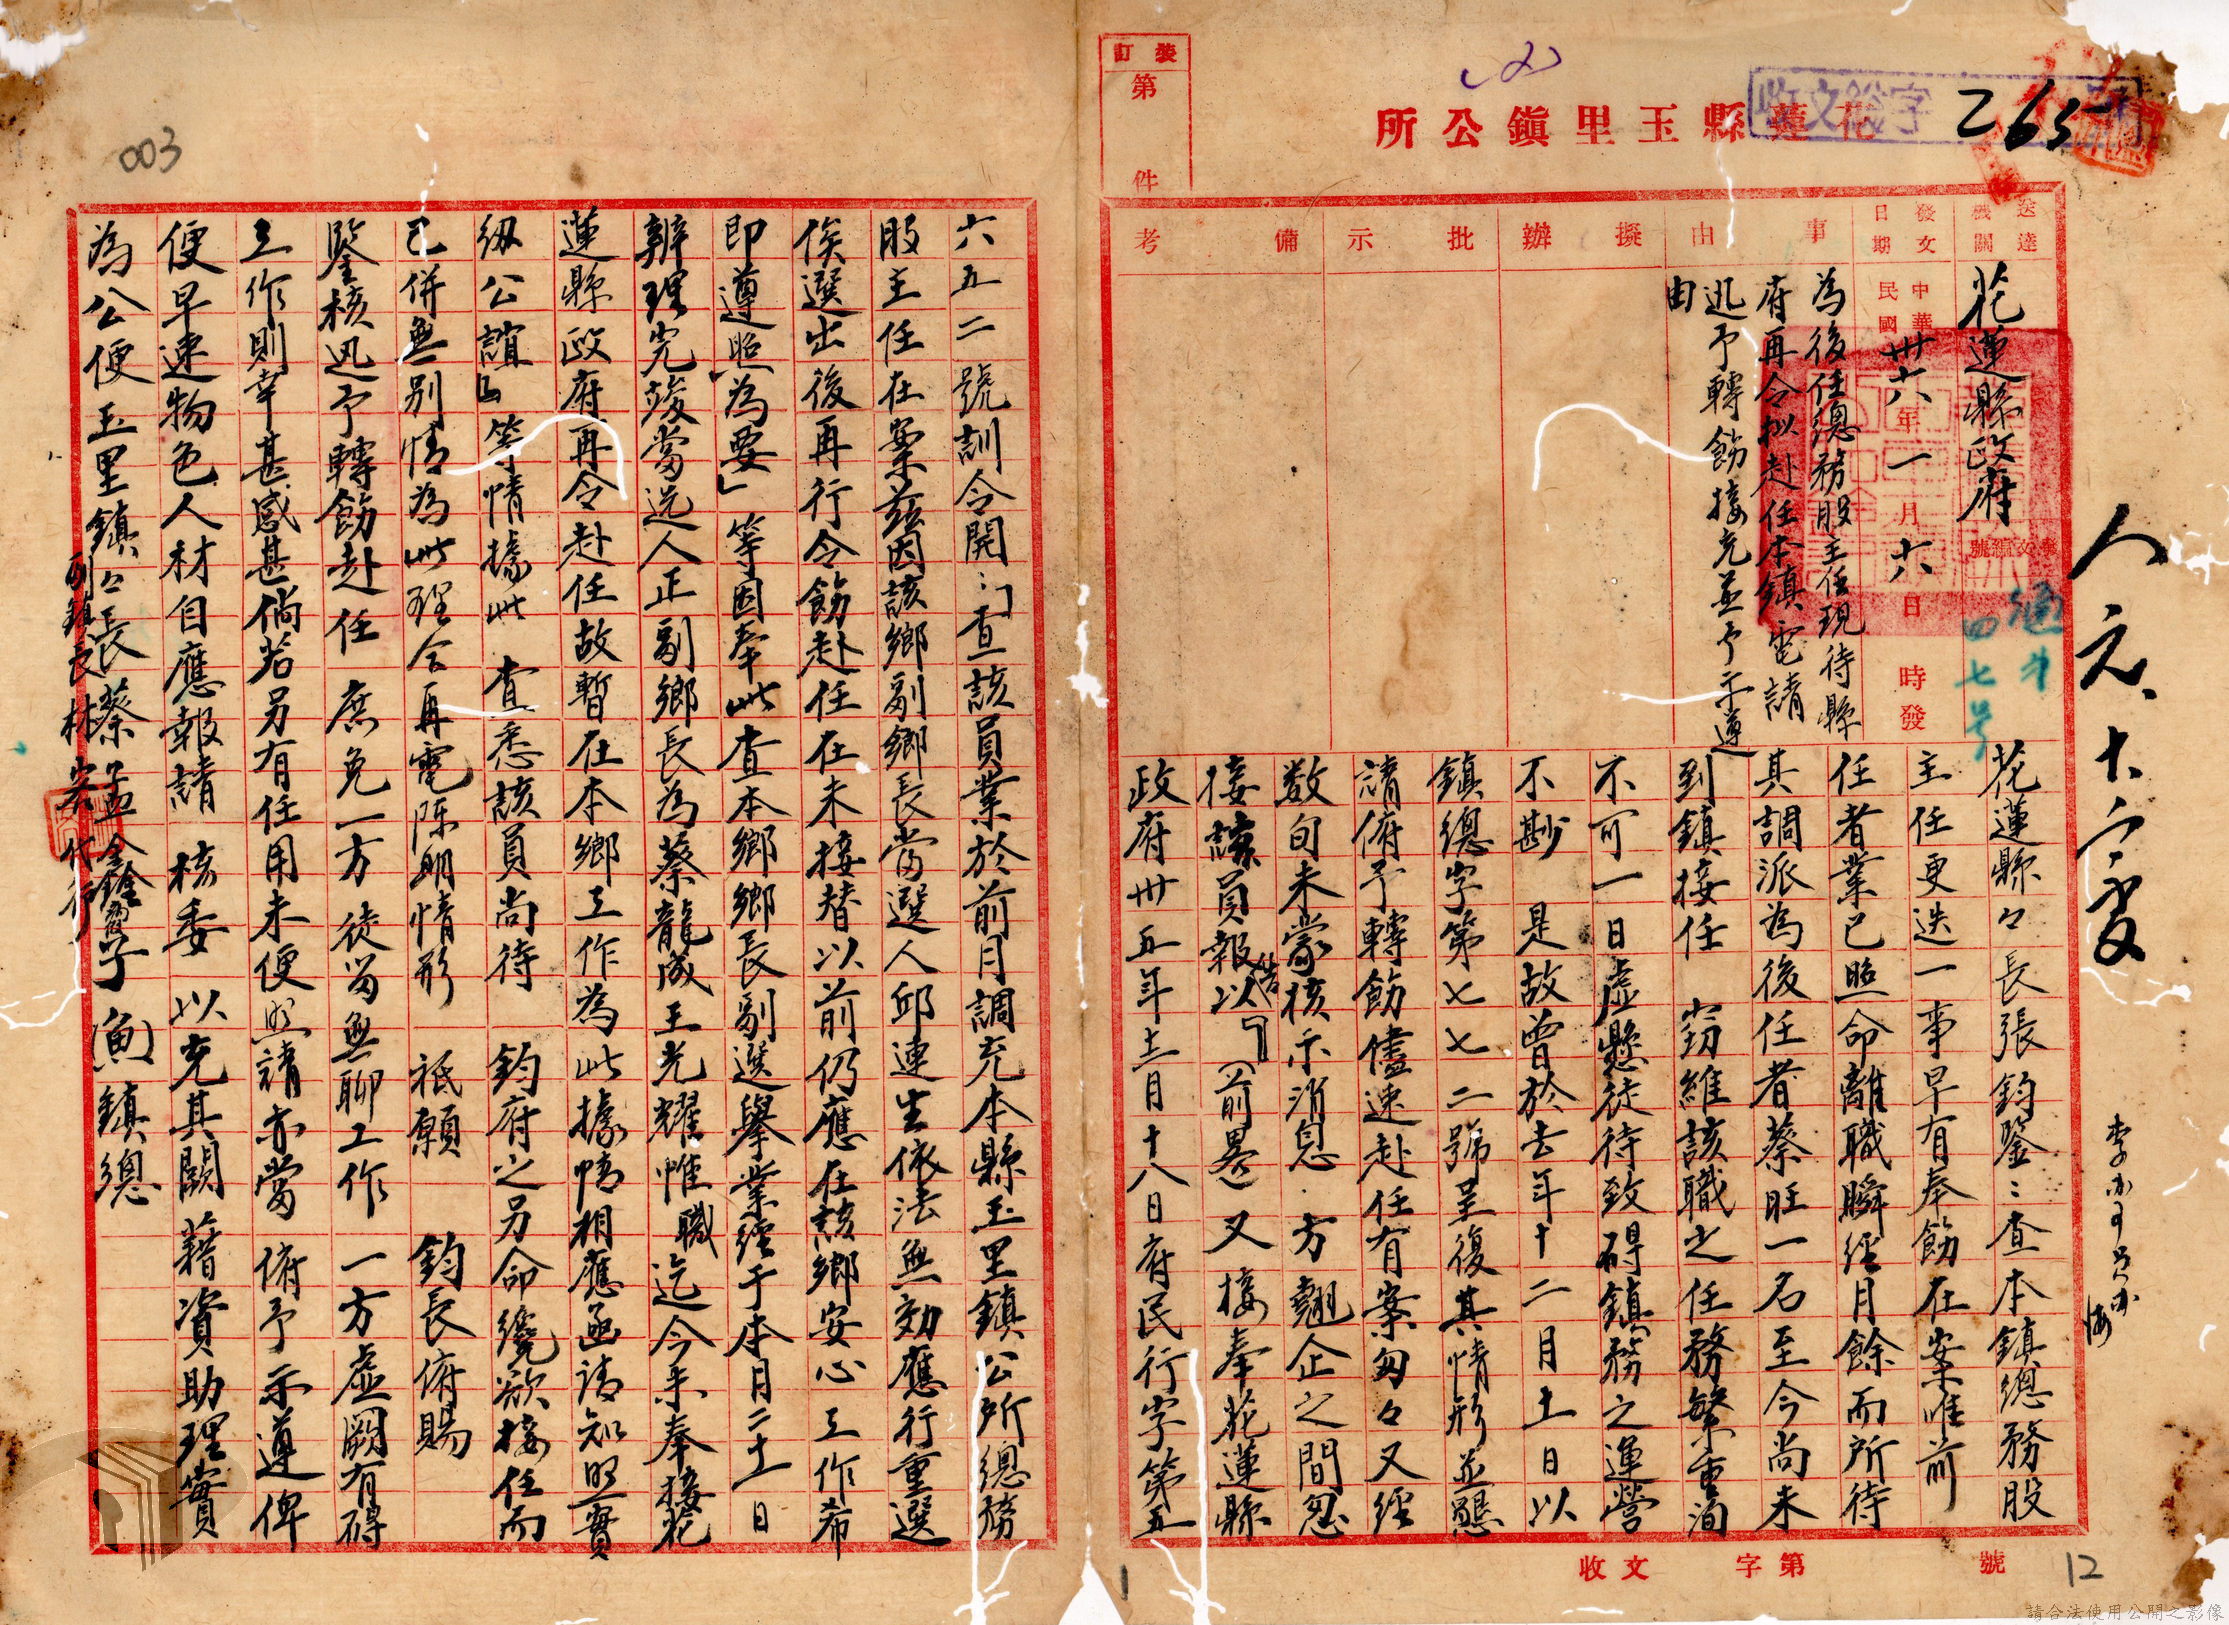 裝訂
第
件
花蓮縣玉里鎮公所
收文總字
265
送達機關
花蓮縣政府
發文編號
四七号
發文日期
中華民國卅六年一月六日
時發
事由
為後任總務股主任現待縣
府再令拟赴任本鎮電請
迅予轉飭接充並予示遵
由
擬辦
批示
備考
花蓮縣々長張鈞鑒：查本鎮總務股
主任更迭一事早有奉飭在案惟前
任者業已照命離職瞬經月餘而所待
其調派為後任者蔡旺一名至今尚未
到鎮接任 竊維該職之任務繁重洵
不可一日虛懸徒待致碍鎮務之運營
不尠 是故曾於去年十二月十一日以
鎮總字第七七二號呈復其情形並懇
請俯予轉飭儘速赴任有案匆々又經
数旬未蒙核示消息．方翹企之間忽
接該員報告以『（前畧）又接奉花蓮縣
政府卅五年十二月十八日府民行字第五
六五二號訓令開：「查該員業於前月調充本縣玉里鎮公所總務
股主任在案茲因該鄉副鄉長當選人邱連生依法無効應行重選
俟選出後再行令飭赴任在未接替以前仍應在該鄉安心工作希
即遵照為要」等因奉此查本鄉鄉長副選舉業經于本月二十一日
辦理完竣當选人正副鄉長為蔡龍成王光耀惟職迄今未奉接花
蓮縣政府再令赴任故暫在本鄉工作為此據情相應函請知照實
級公誼』等情據此 查悉該員尚待 鈞府之另命纔欲接任而
已併無別情為此理合再電陳明情形 祇願 鈞長俯賜
鑒核迅予轉飭赴任 庶免一方徒留無聊工作 一方虛闕有碍
工作則幸甚感甚倘若另有任用未便照請亦當 俯予示遵俾
便早速物色人材自應報請 核委 以充其闕藉資助理實
為公便 玉里鎮々長蔡孟鑫 叩子（魚）鎮總
副鎮長林 代行
人元、
003
12
收文 字第 號
請合法使用公開之影像